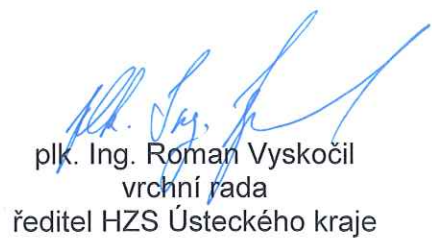 plk. Ing.
plk. Ing. Roman Vyskočil
vrchní rada
ředitel HZS Ústeckého kraje